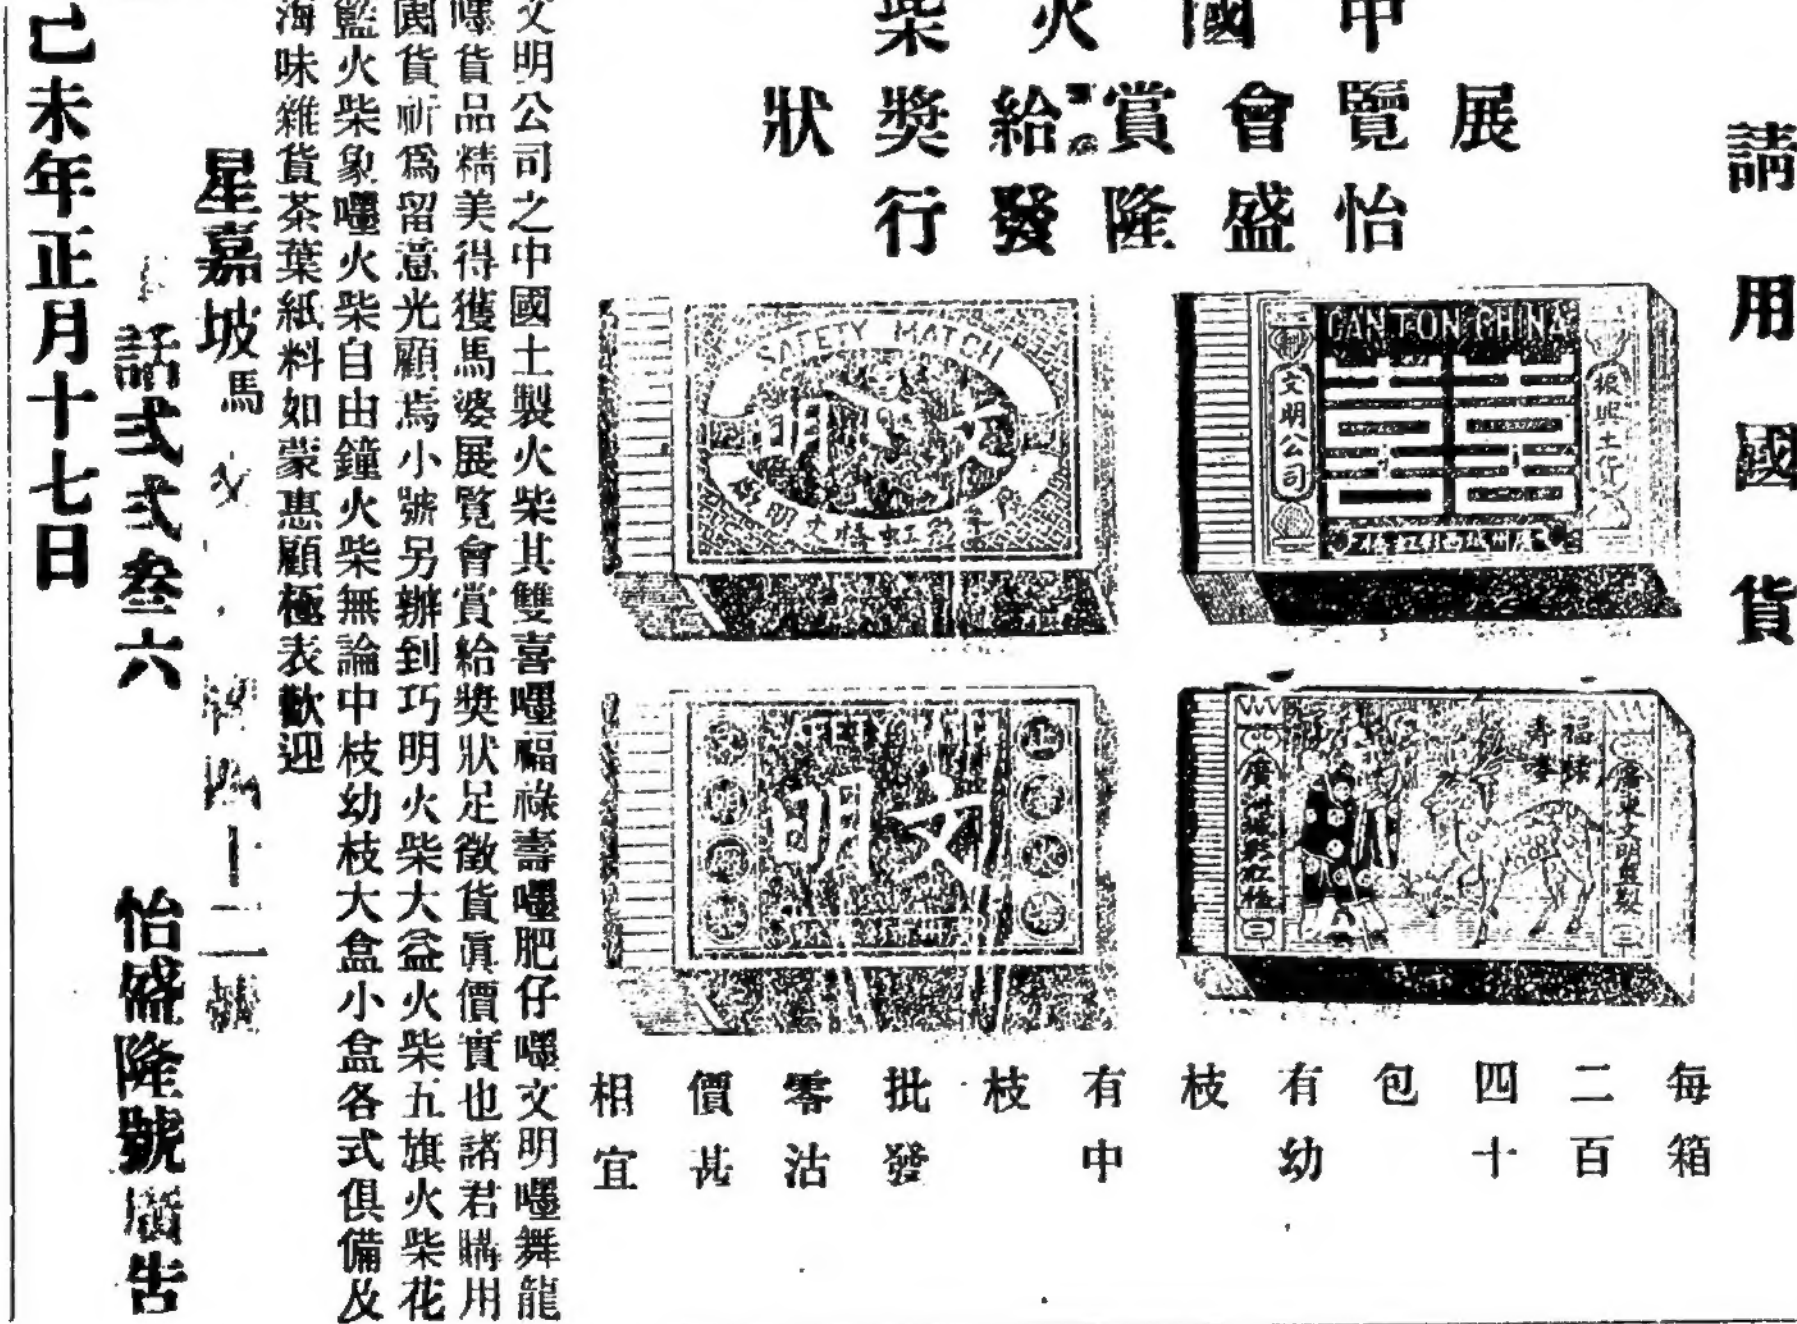 請用國貨
中國火柴
展覽會賞給獎狀
怡盛隆發行
CANTON CHINA
振興土貨
文明公司
SAFETY MATCH
文明
福祿壽喜
廣東文明監製
文明
每箱
二百
四十
包
有幼
枝
有中
枝
批發
零沽
價甚
相宜
文明公司之中國土製火柴其雙喜嘜福祿壽嘜肥仔嘜文明嘜舞龍
嘜貨品精美得獲馬婆展覽會賞給獎狀足徵貨眞價實也諸君購用
國貨祈爲留意光顧焉小號另辦到巧明火柴大益火柴五旗火柴花
籃火柴象嘜火柴自由鐘火柴無論中枝幼枝大盒小盒各式俱備及
海味雜貨茶葉紙料如蒙惠顧極表歡迎
星嘉坡馬 四十二號
話弍弍叁六 怡盛隆號廣告
己未年正月十七日